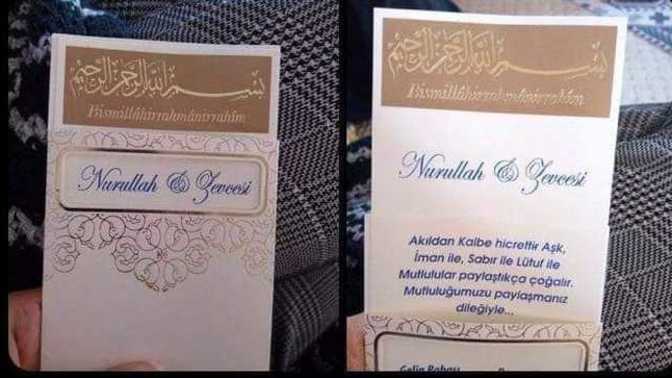 بسم الله الرحمن الرحيم
Bismillâhirrahmânirrahîm
Nurullah & Zevcesi
بسم الله الرحمن الرحيم
Bismillâhirrahmânirrahîm
Nurullah & Zevcesi
Akıldan Kalbe hicrettir Aşk,
İman ile, Sabır ile Lütuf ile
Mutlulular paylaştıkça çoğalır.
Mutluluğumuzu paylaşmanız
dileğiyle...
Gelin Babası